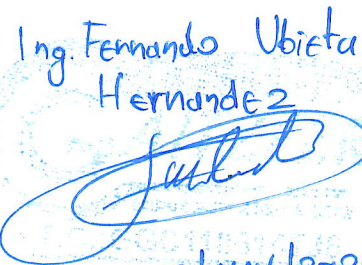 Ing. Fernando Ubieta
Hernandez